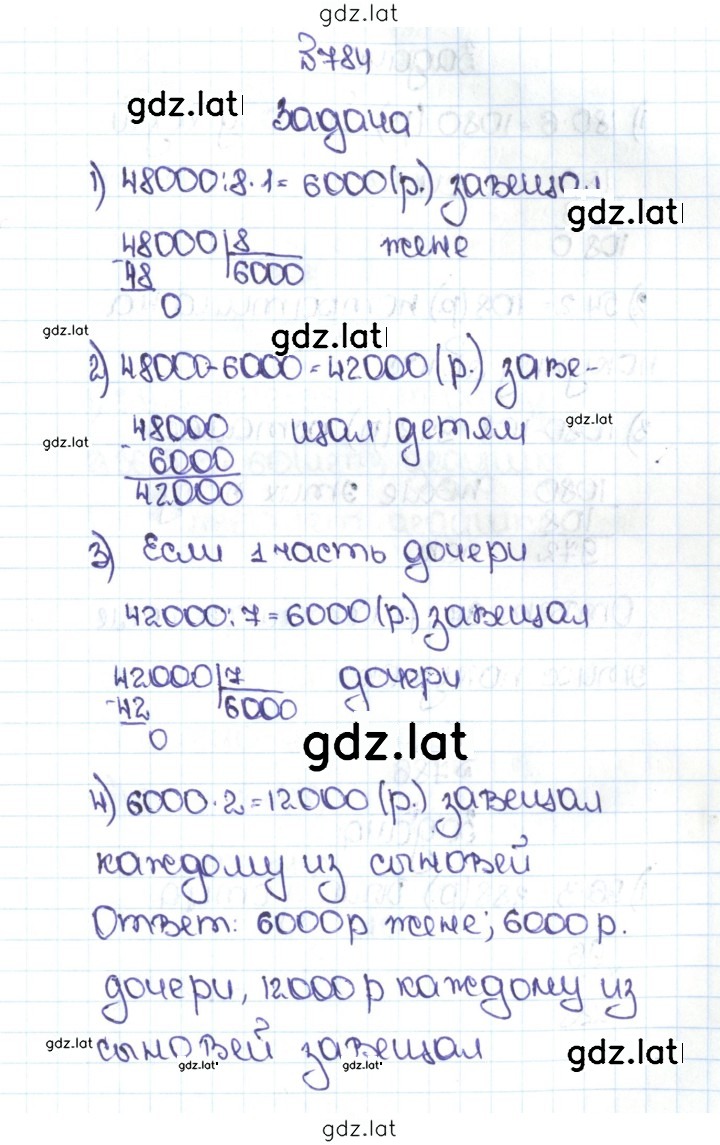 gdz.lat
В784
gdz.lat
Задача
1) 48000:8·1= 6000(р.) завещал
gdz.lat
48000|8 жене
-48 6000
0
gdz.lat
gdz.lat
2) 48000-6000=42000(р.) заве-
gdz.lat
48000 щал детям
gdz.lat
- 6000
42000
3) Если 1 часть дочери
42000:7=6000(р.) завещал
42000|7 дочери
-42 6000
0
gdz.lat
4) 6000·2=12000(р.) завещал
каждому из сыновей
Ответ: 6000р жене; 6000р.
дочери, 12000р каждому из
gdz.lat
сыновей завещал
gdz.lat
gdz.lat
gdz.lat
gdz.lat